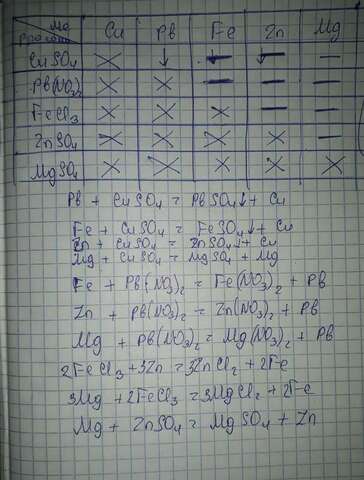 Ме Cu Pb Fe Zn Mg
раствор
CuSO4 × ↓ — — —
Pb(NO3)2 × × — — —
FeCl3 × × × — —
ZnSO4 × × × × —
MgSO4 × × × × ×
Pb + CuSO4 = PbSO4↓ + Cu
Fe + CuSO4 = FeSO4↓ + Cu
Zn + CuSO4 = ZnSO4↓ + Cu
Mg + CuSO4 = MgSO4 + Mg
Fe + Pb(NO3)2 = Fe(NO3)2 + Pb
Zn + Pb(NO3)2 = Zn(NO3)2 + Pb
Mg + Pb(NO3)2 = Mg(NO3)2 + Pb
2FeCl3 + 3Zn = 3ZnCl2 + 2Fe
3Mg + 2FeCl3 = 3MgCl2 + 2Fe
Mg + ZnSO4 = MgSO4 + Zn